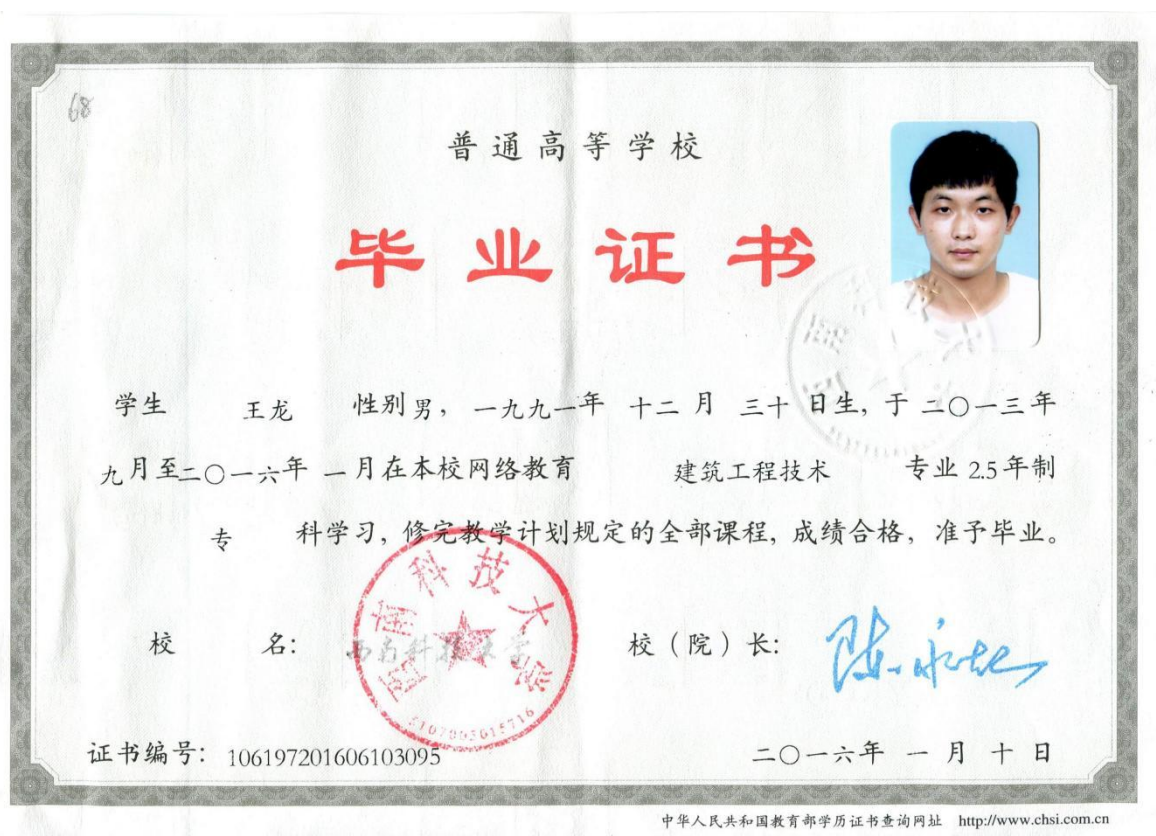 68
普通高等学校
毕业证书
学生 王龙 性别男，一九九一年 十二月 三十日生，于二〇一三年
九月至二〇一六年 一月在本校网络教育 建筑工程技术 专业 2.5 年制
专 科学习，修完教学计划规定的全部课程，成绩合格，准予毕业。
西南科技大学
校 名： 西南科技大学 校（院）长：
证书编号： 106197201606103095 二〇一六年 一月 十日
中华人民共和国教育部学历证书查询网址 http://www.chsi.com.cn